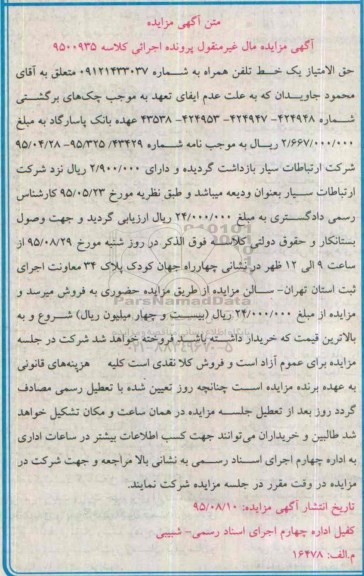 متن آگهی مزایده
آگهی مزایده مال غیرمنقول پرونده اجرائی کلاسه ۹۵۰۰۹۳۵
حق الامتیاز یک خط تلفن همراه به شماره ۰۹۱۲۱۴۳۳۰۳۷ متعلق به آقای
محمود جاویدان که به علت عدم ایفای تعهد به موجب چک‌های برگشتی
شماره ۴۲۴۹۴۸- ۴۲۴۹۴۷- ۴۲۴۹۵۳- ۴۳۵۳۸ عهده بانک پاسارگاد به مبلغ
۲/۶۶۷/۰۰۰/۰۰۰ ریال به موجب نامه شماره ۹۵/۳۲۵/۴۳۴۲۹- ۹۵/۰۴/۲۸
شرکت ارتباطات سیار بازداشت گردیده و دارای ۲/۹۰۰/۰۰۰ ریال نزد شرکت
ارتباطات سیار بعنوان ودیعه میباشد و طبق نظریه مورخ ۹۵/۰۵/۲۳ کارشناس
رسمی دادگستری به مبلغ ۲۴/۰۰۰/۰۰۰ ریال ارزیابی گردید و جهت وصول
بستانکار و حقوق دولتی کلاسه فوق الذکر در روز شنبه مورخ ۹۵/۰۸/۲۹ از
ساعت ۹ الی ۱۲ ظهر در نشانی چهارراه جهان کودک پلاک ۳۴ معاونت اجرای
ثبت استان تهران- سالن مزایده از طریق مزایده حضوری به فروش میرسد و
مزایده از مبلغ ۲۴/۰۰۰/۰۰۰ ریال (بیست و چهار میلیون ریال) شروع و به
بالاترین قیمت که خریدار داشته باشد فروخته خواهد شد شرکت در جلسه
مزایده برای عموم آزاد است و فروش کلا نقدی است کلیه هزینه‌های قانونی
به عهده برنده مزایده است چنانچه روز تعیین شده با تعطیل رسمی مصادف
گردد روز بعد از تعطیل جلسه مزایده در همان ساعت و مکان تشکیل خواهد
شد طالبین و خریداران می‌توانند جهت کسب اطلاعات بیشتر در ساعات اداری
به اداره چهارم اجرای اسناد رسمی به نشانی بالا مراجعه و جهت شرکت در
مزایده در وقت مقرر در جلسه مزایده شرکت نمایند.
تاریخ انتشار آگهی مزایده: ۹۵/۰۸/۱۰
کفیل اداره چهارم اجرای اسناد رسمی- شبیبی
م.الف: ۱۶۴۷۸
ParsNamadData